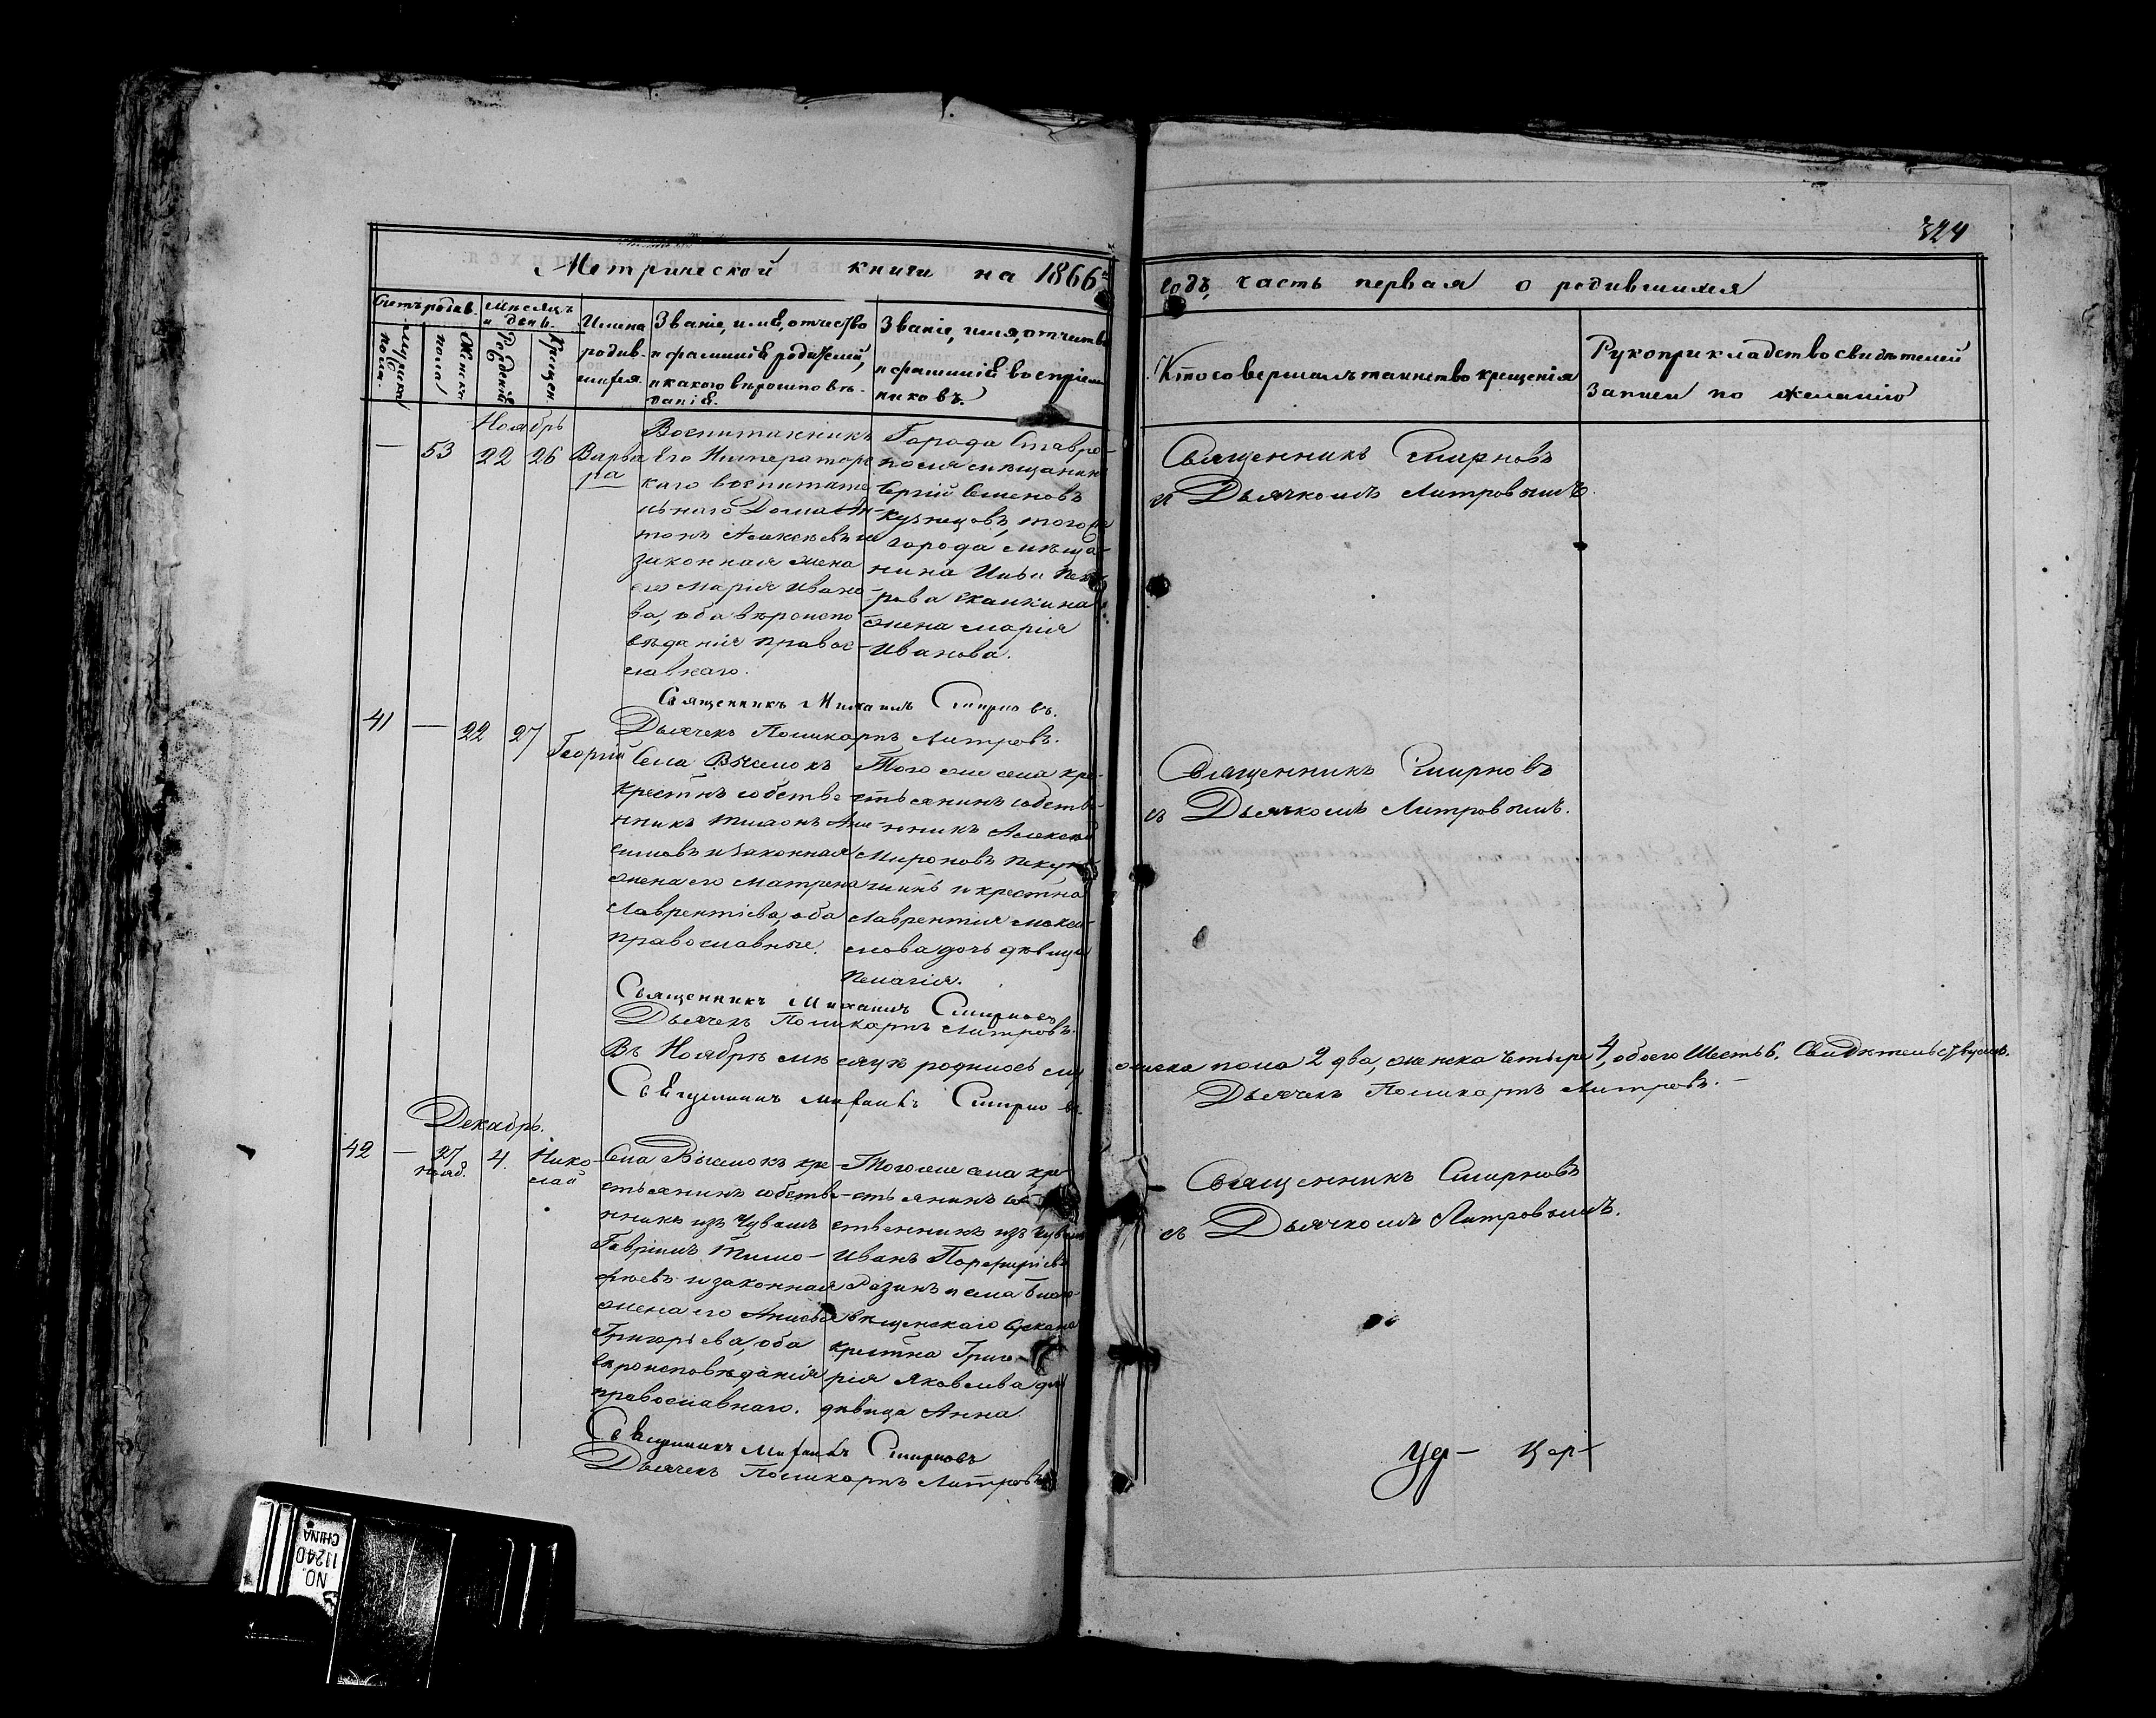 324
Метрической книги на 1866й
годъ, часть первая о родившихся
Счетъ родив.
Мѣсяцъ и день.
Имена родив-шихся.
Званіе, имя, отчество
и фамилія родителей,
и какого вѣроисповѣ-
данія.
Званіе, имя, отчество
и фамилія воспріем
никовъ.
Мужска пола.
Женска пола
Рожденія
Крещен.
Кто совершалъ таинство крещенія
Рукоприкладство свидѣтелей
записи по желанію
Ноябрь
— 53 22 26 Варва
ра
Воспитанникъ
Его Императорс
каго воспитате
льнаго Дома Ан-
тонъ Алексѣевъ и
законная жена
его Марія Ивано
ва, оба вѣроиспо
вѣданія правос-
лавнаго.
Города Ставро-
поля мѣщанинъ
Сергій Семеновъ
Кузнецовъ, того же
города мѣща-
нина Ильи Пет
рова
жена Марія
Иванова.
Священникъ Смирновъ
съ Дьячкомъ Литровымъ.
Священникъ Михаилъ Смирновъ.
Дьячекъ Поликарпъ Литровъ.
41 — 22 27 Георгій
Села Выселокъ
крестнъ собстве
нникъ Тихонъ Ани
симовъ и законная
жена его Матрена
Лаврентіева, оба
православные.
Того же села кре-
стьянинъ собстве-
нникъ Алексѣй
Мироновъ
и крестна
Лаврентія Макси-
мова дочь дѣвица
Пелагія.
Священникъ Смирновъ
съ Дьячкомъ Литровымъ.
Священникъ Михаилъ Смирновъ
Дьячекъ Поликарпъ Литровъ.
Въ Ноябрѣ мѣсяцѣ родилось му жеска пола 2 два, женска четыре 4, обоего Шесть 6. Свидѣтельствуемъ.
Священникъ Михаилъ Смирновъ
Дьячекъ Поликарпъ Литровъ.
Декабрь.
42 — 27 4. Нико-
нояб. лай
Села Выселокъ кре-
стьянинъ собстве-
нникъ изъ Чувашъ
Гавріилъ Тимо-
феевъ и законная
жена его Анисья
Григорьева, оба
вѣроисповѣданія
православнаго.
Того же села кре
стьянинъ соб
ственникъ изъ Чувашъ
Иванъ Порфиріевъ
Разинъ и села Благо
вѣщенскаго
крестна Григо-
рія Яковлева дочь
дѣвица Анна.
Священникъ Смирновъ
съ Дьячкомъ Литровымъ.
Священникъ Михаилъ Смирновъ
Дьячекъ Поликарпъ Литровъ
NO.
11240
CHINA